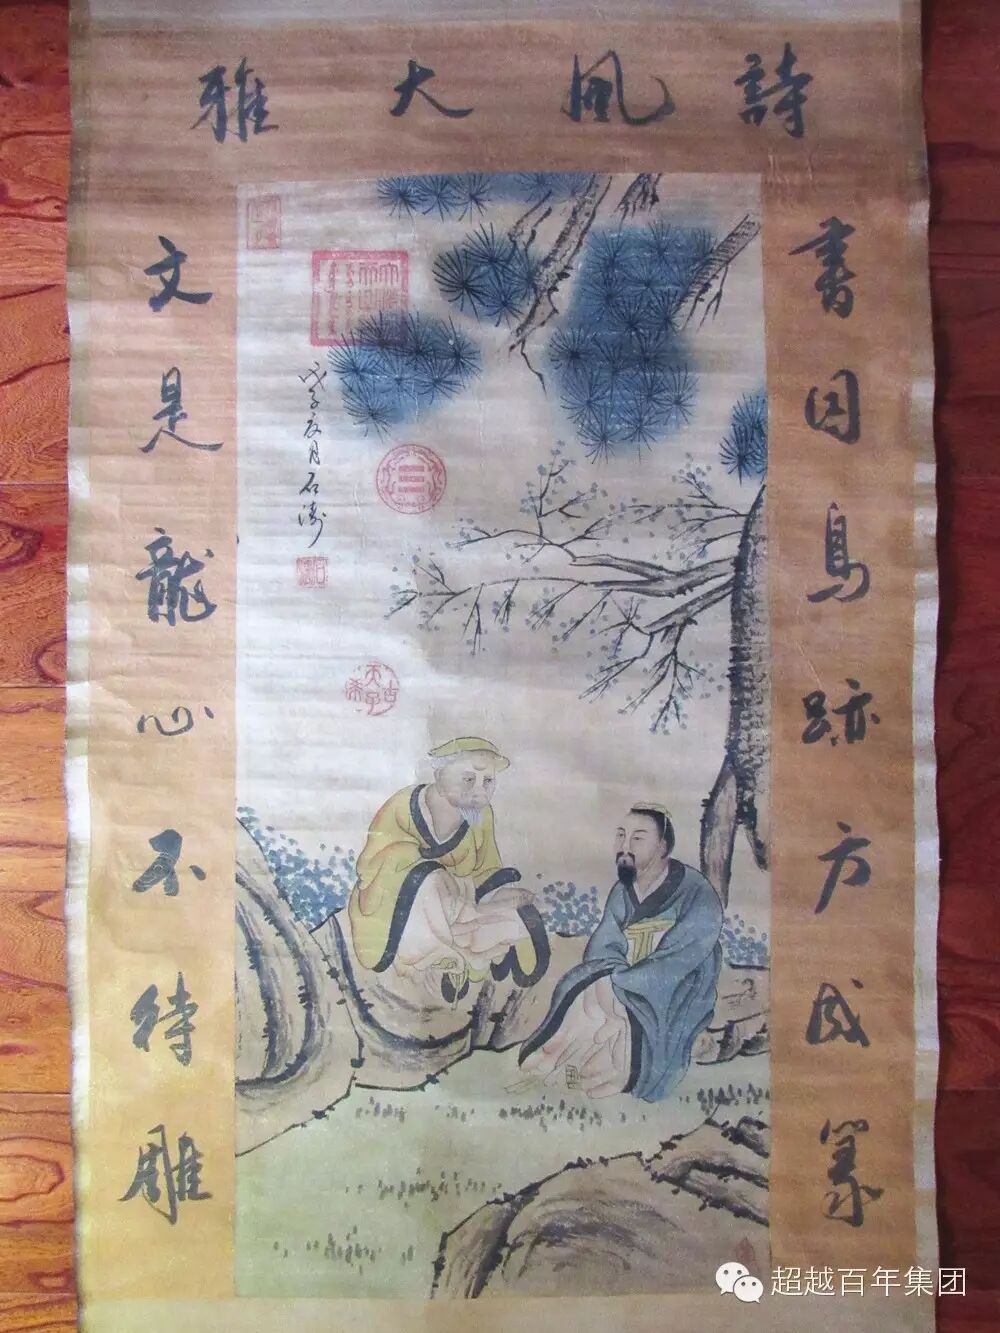 詩風大雅
書因鳥跡方成篆
文是龍心不待雕
戊子夏月石濤
古希天子
超越百年集团